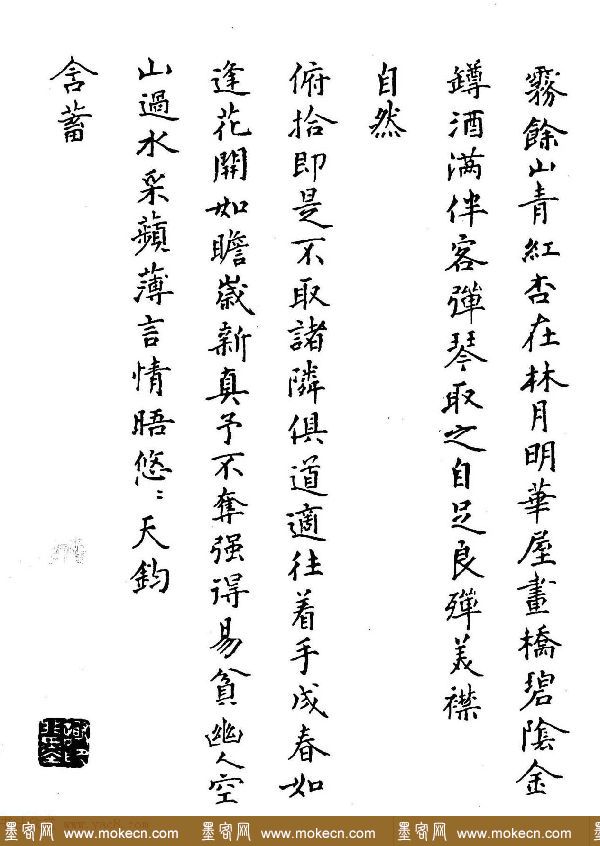 霧餘山青紅杏在林月明華屋畫橋碧陰金
罇酒滿伴客彈琴取之自足良殫美襟
自然
俯拾即是不取諸隣俱道適往着手成春如
逢花開如瞻歲新真予不奪强得易貧幽人空
山過水采蘋薄言情晤悠〻天鈞
含蓄
墨客网 www.mokecn.com 墨客网 www.mokecn.com 墨客网 www.mokecn.com